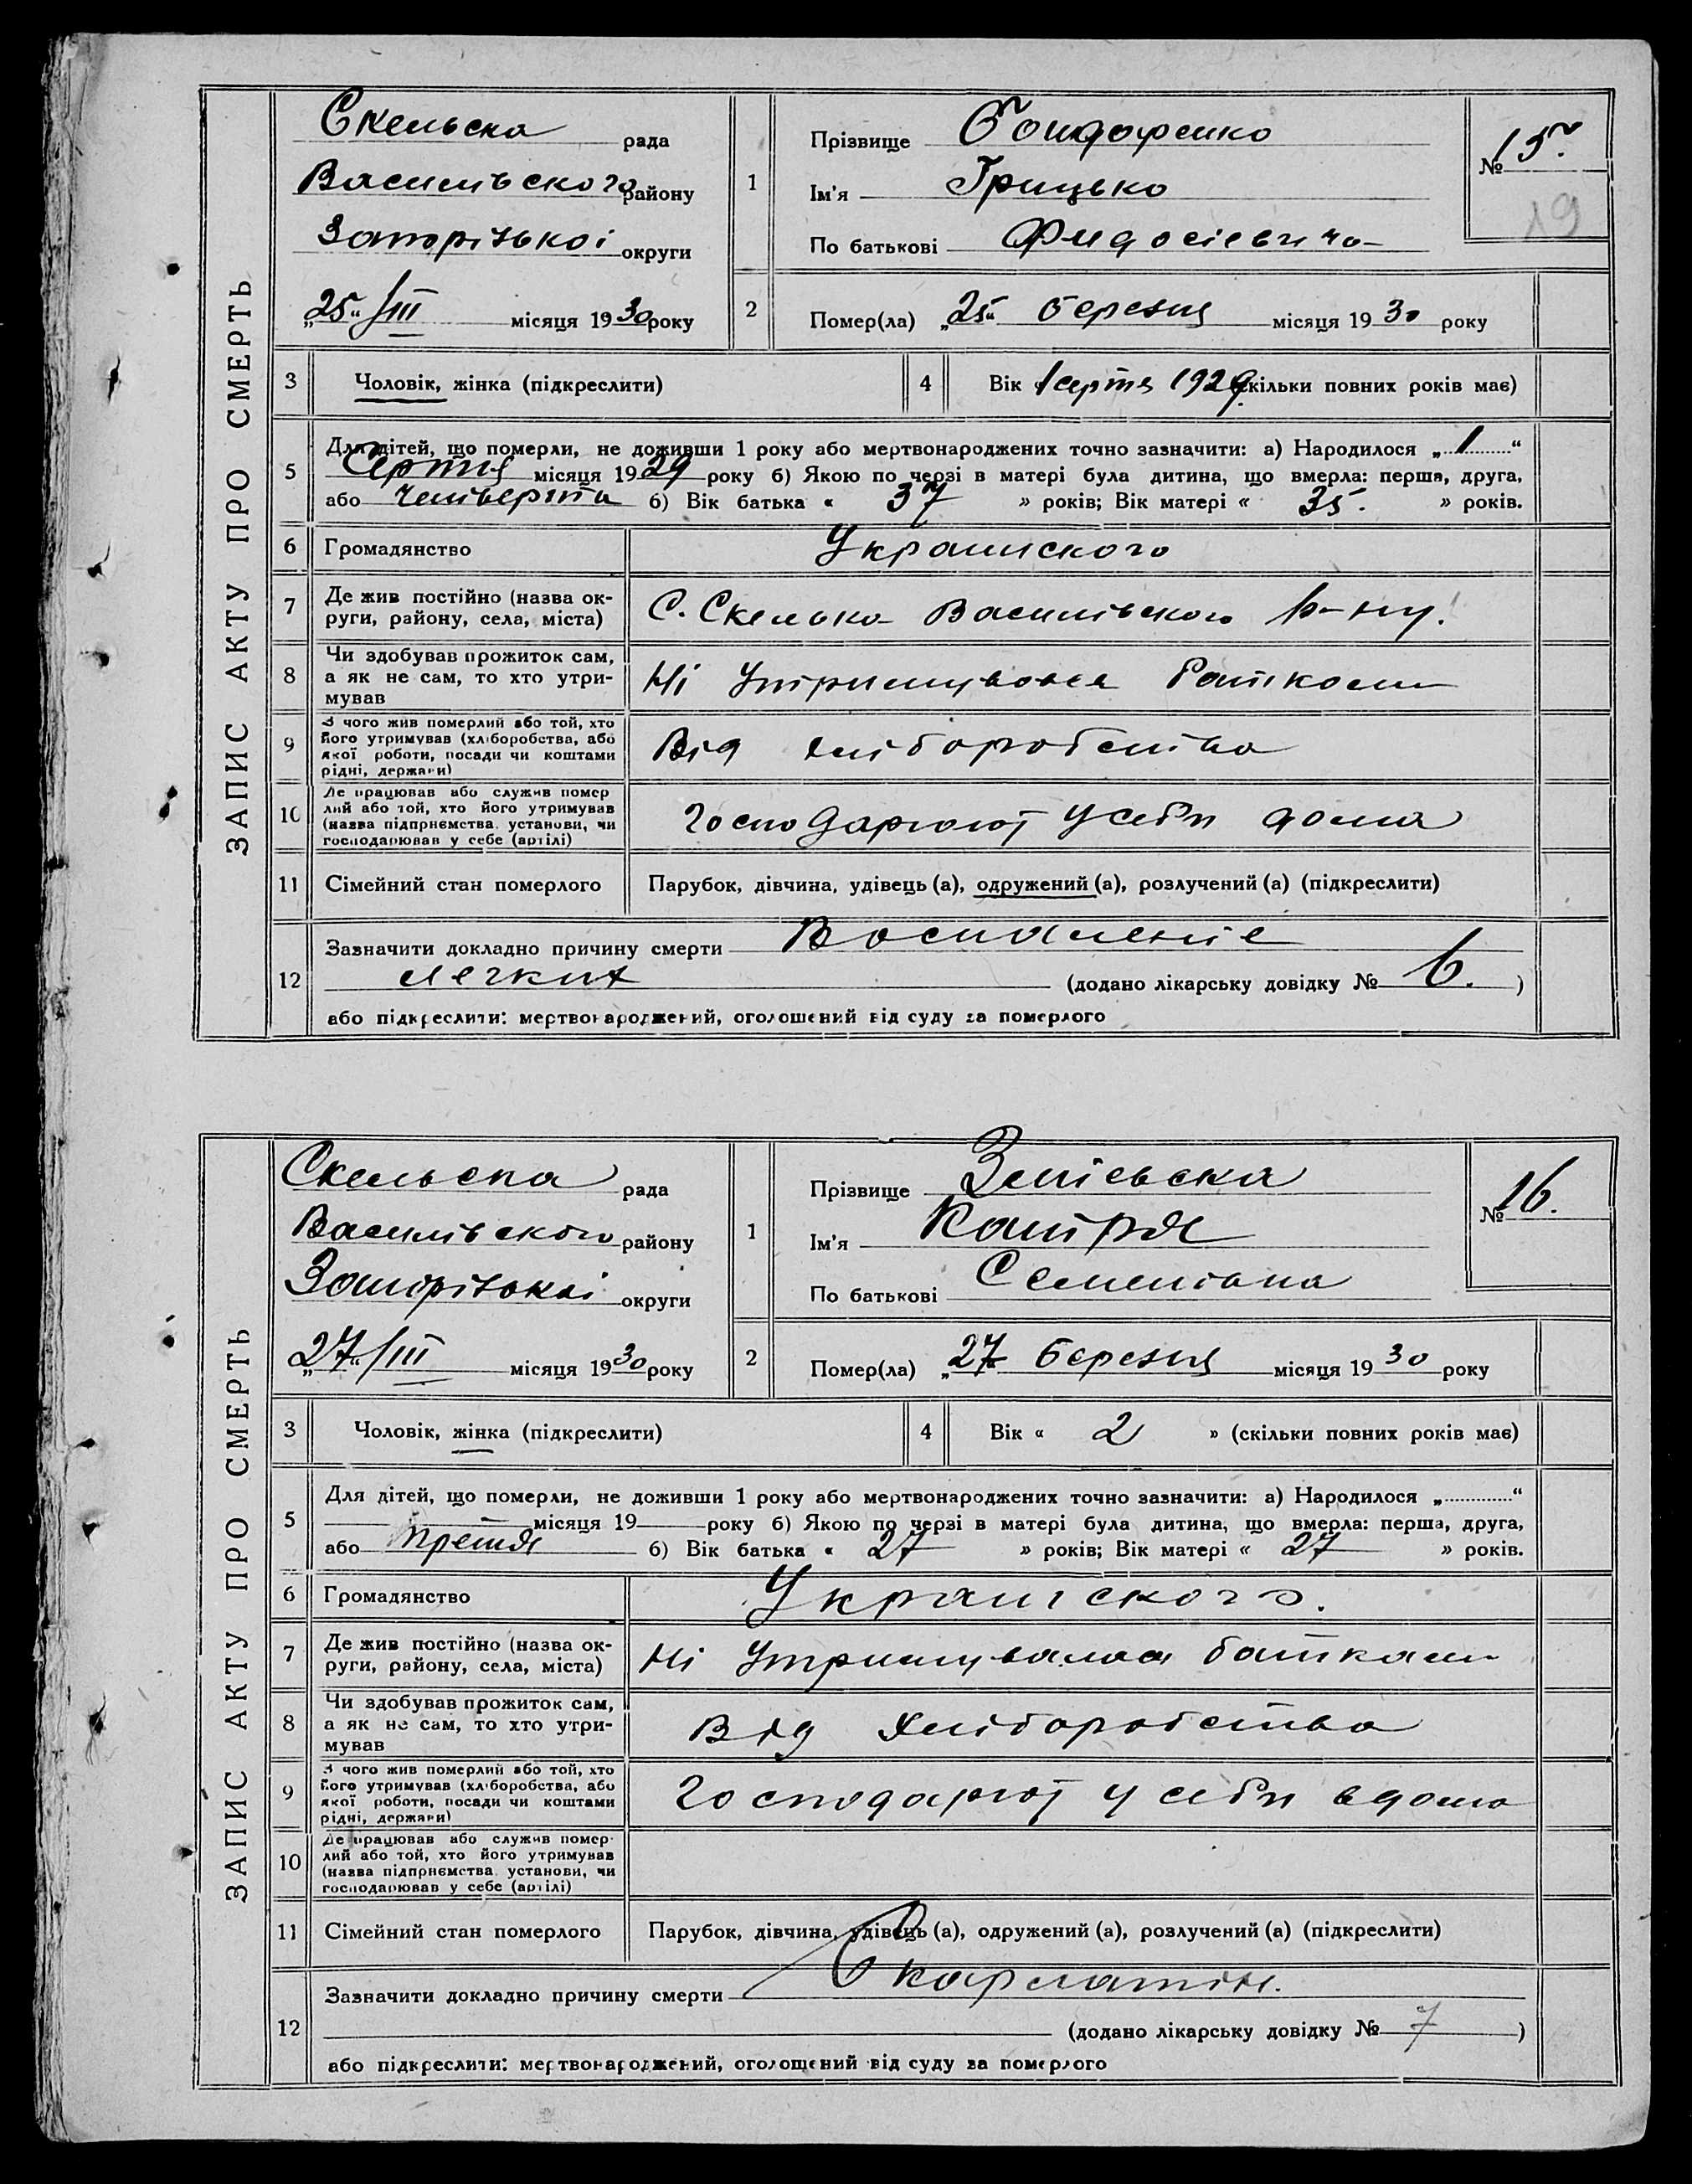 ЗАПИС АКТУ ПРО СМЕРТЬ
Скельска рада
Василівского району
Запорізькоі округи
„25“ /III місяця 1930 року
1 Прізвище Бондаренко
Ім'я Грицько
По батькові Федосіевича
№ 15.
19
2 Помер(ла) „25“ березня місяця 1930 року
3 Чоловік, жінка (підкреслити)
4 Вік 1 серпня 1929 (скільки повних років має)
5 Для дітей, що померли, не доживши 1 року або мертвонароджених точно зазначити: а) Народилося „1“
Серпня місяця 1929 року б) Якою по черзі в матері була дитина, що вмерла: перша, друга,
або четверта б) Вік батька « 37 » років; Вік матері « 35. » років.
6 Громадянство Украінского
7 Де жив постійно (назва ок-
руги, району, села, міста) С. Скелька Василівского р-ну.
8 Чи здобував прожиток сам,
а як не сам, то хто утри-
мував Ні Утримувався батком
9 З чого жив померлий або той, хто
його утримував (хліборобства, або
якої роботи, посади чи коштами
рідні, держави) Від хліборобства
10 Де працював або служив помер
лий або той, хто його утримував
(назва підприємства, установи, чи
господарював у себе (артілі) господарюют у себи дома
11 Сімейний стан померлого Парубок, дівчина, удівець (а), одружений (а), розлучений (а) (підкреслити)
12 Зазначити докладно причину смерти Воспаленіе
легких (додано лікарську довідку № 6. )
або підкреслити: мертвонароджений, оголошений від суду за померлого
ЗАПИС АКТУ ПРО СМЕРТЬ
Скельска рада
Василівского району
Запорізькоі округи
„27“ /III місяця 1930 року
1 Прізвище Зміевска
Ім'я Катря
По батькові Семенівна
№ 16.
2 Помер(ла) „27“ березня місяця 1930 року
3 Чоловік, жінка (підкреслити)
4 Вік « 2 » (скільки повних років має)
5 Для дітей, що померли, не доживши 1 року або мертвонароджених точно зазначити: а) Народилося „ “
місяця 19 року б) Якою по черзі в матері була дитина, що вмерла: перша, друга,
або третя б) Вік батька « 27 » років; Вік матері « 27 » років.
6 Громадянство Украінского.
7 Де жив постійно (назва ок-
руги, району, села, міста) Ні Утримувалась батками
8 Чи здобував прожиток сам,
а як не сам, то хто утри-
мував Від Хліборобства
9 З чого жив померлий або той, хто
його утримував (хліборобства, або
якої роботи, посади чи коштами
рідні, держави) Господарюют у себи вдома
10 Де працював або служив помер
лий або той, хто його утримував
(назва підприємства, установи, чи
господарював у себе (артілі)
11 Сімейний стан померлого Парубок, дівчина, удівець (а), одружений (а), розлучений (а) (підкреслити)
12 Зазначити докладно причину смерти Скарлатін.
(додано лікарську довідку № 7 )
або підкреслити: мертвонароджений, оголошений від суду за померлого